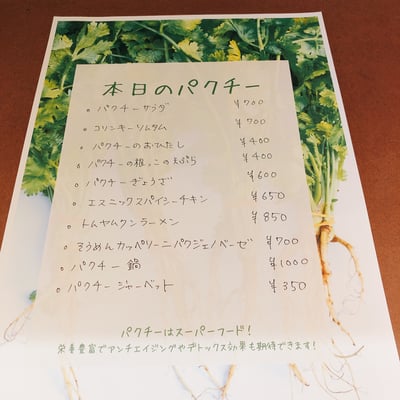 本日のパクチー
パクチーサラダ ¥700
コリンキーソムタム ¥700
パクチーのおひたし ¥400
パクチーの根っこの天ぷら ¥400
パクチーぎょうざ ¥600
エスニックスパイシーチキン ¥650
トムヤムクンラーメン ¥850
そうめんカッペリーニパクジェノベーゼ ¥700
パクチー鍋 ¥1000
パクチーシャーベット ¥350
パクチーはスーパーフード!
栄養豊富でアンチエイジングやデトックス効果も期待できます!